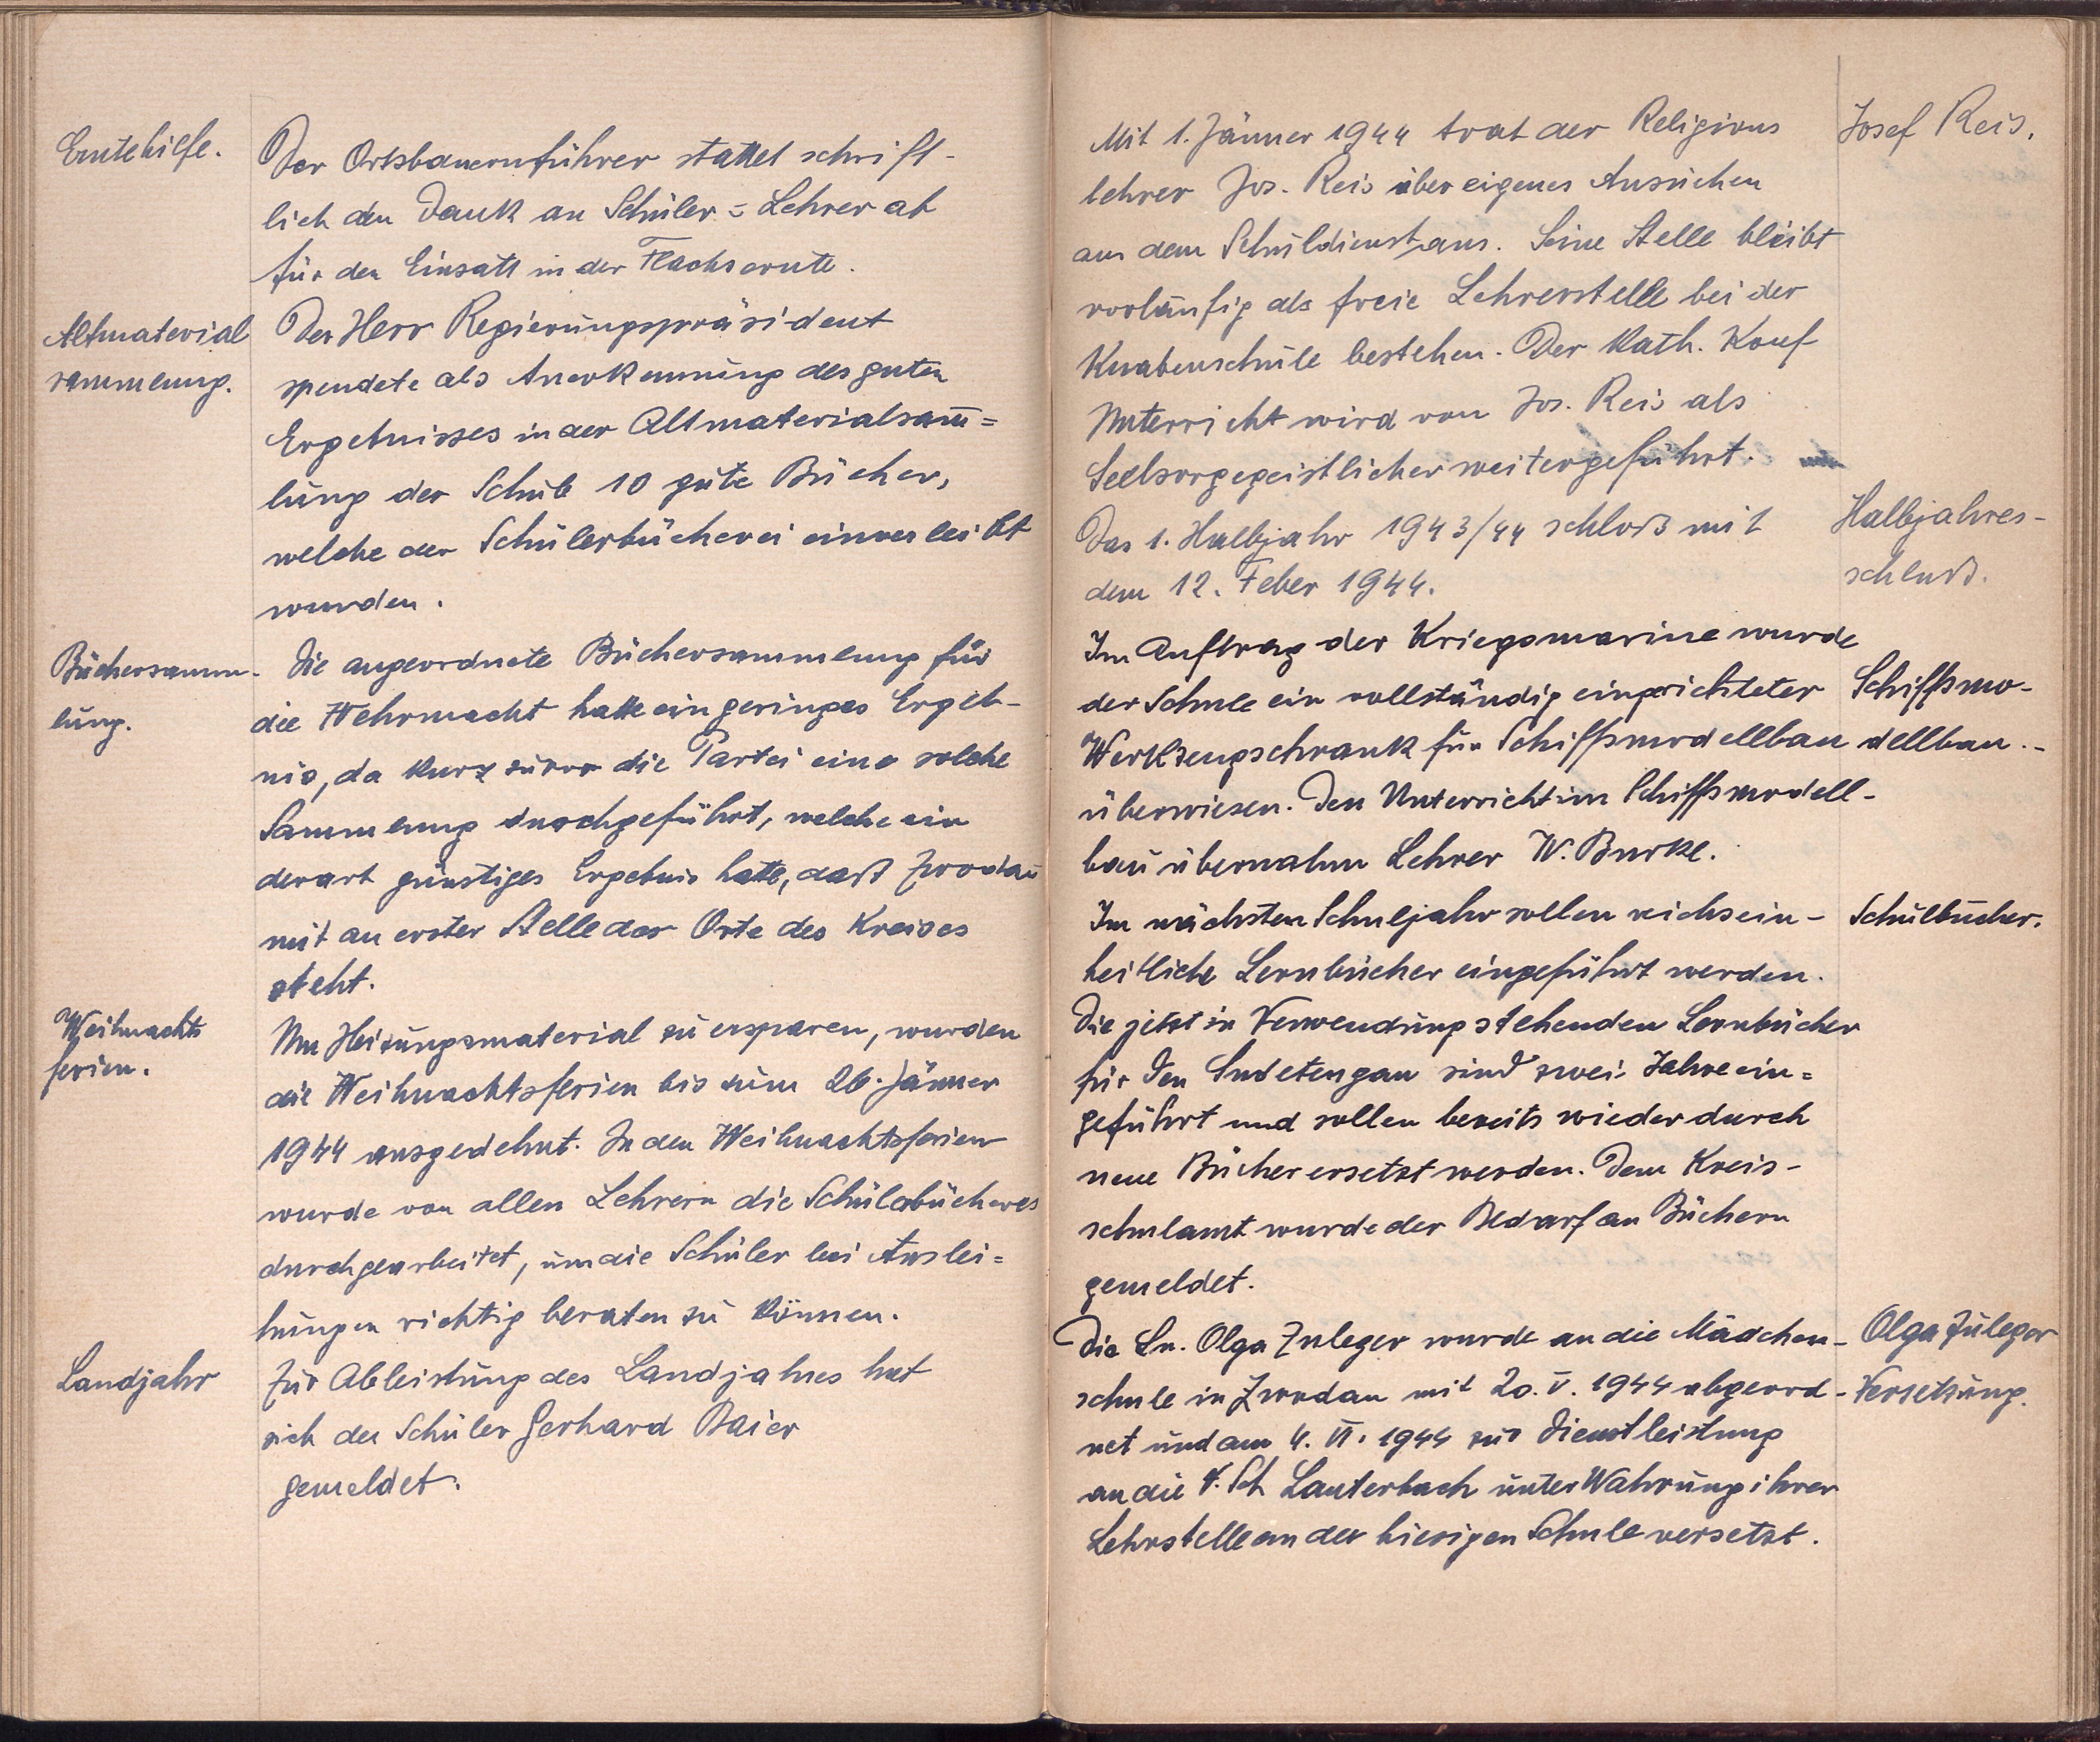 Erntehilfe.
Der Ortsbauernführer stattet schrift-
lich den Dank an Schüler = Lehrer ab
für den Einsatz in der Flachsernte.
Altmaterial
sammlung.
Der Herr Regierungspräsident
spendete als Anerkennung des guten
Ergebnisses in der Altmaterialsam̅=
lung der Schule 10 gute Bücher,
welche der Schülerbücherei einverleibt
wurden.
Büchersamm-
lung.
Die angeordnete Büchersammlung für
die Wehrmacht hatte ein geringes Ergeb-
nis, da kurz zuvor die Partei eine solche
Sammlung durchgeführt, welche ein
derart günstiges Ergebnis hatte, daß Zwodau
mit an erster Stelle der Orte des Kreises
steht.
Weihnachts
ferien.
Um Heizungsmaterial zu ersparen, wurden
die Weihnachtsferien bis zum 26. Jänner
1944 ausgedehnt. In den Weihnachtsferien
wurde von allen Lehrern die Schülerbücherei
durchgearbeitet, um die Schüler bei Auslei=
hungen richtig beraten zu können.
Landjahr
Zur Ableistung des Landjahres hat
sich der Schüler Gerhard Baier
gemeldet.
Mit 1. Jänner 1944 trat der Religions
lehrer Jos. Reis über eigenes Ansuchen
aus dem Schuldienst aus. Seine Stelle bleibt
vorläufig als freie Lehrerstelle bei der
Knabenschule bestehen. Der kath. Konf
Unterricht wird von Jos. Reis als
Seelsorgegeistlicher weitergeführt.
Josef Reis.
Das 1. Halbjahr 1943/44 schloß mit
dem 12. Feber 1944.
Halbjahres-
schluß.
Im Auftrag der Kriegsmarine wurde
der Schule ein vollständig eingerichteter
Werkzeugschrank für Schiffsmodellbau
überwiesen. Den Unterricht im Schiffsmodell-
bau übernahm Lehrer W. Burke.
Schiffsmo-
dellbau.-
Im nächsten Schuljahr sollen reichsein-
heitliche Lernbücher eingeführt werden.
Die jetzt in Verwendung stehenden Lernbücher
für den Sudetengau sind zwei Jahre ein=
geführt und sollen bereits wieder durch
neue Bücher ersetzt werden. Dem Kreis-
schulamt wurde der Bedarf an Büchern
gemeldet.
Schulbücher.
Die Ln. Olga Zuleger wurde an die Mädchen-
schule in Zwodau mit 20. V. 1944 abgeord-
net und am 4. VI. 1944 zur Dienstleistung
an die V. Sch Lauterbach unter Wahrung ihrer
Lehrstelle an der hiesigen Schule versetzt.
Olga Zuleger
Versetzung.